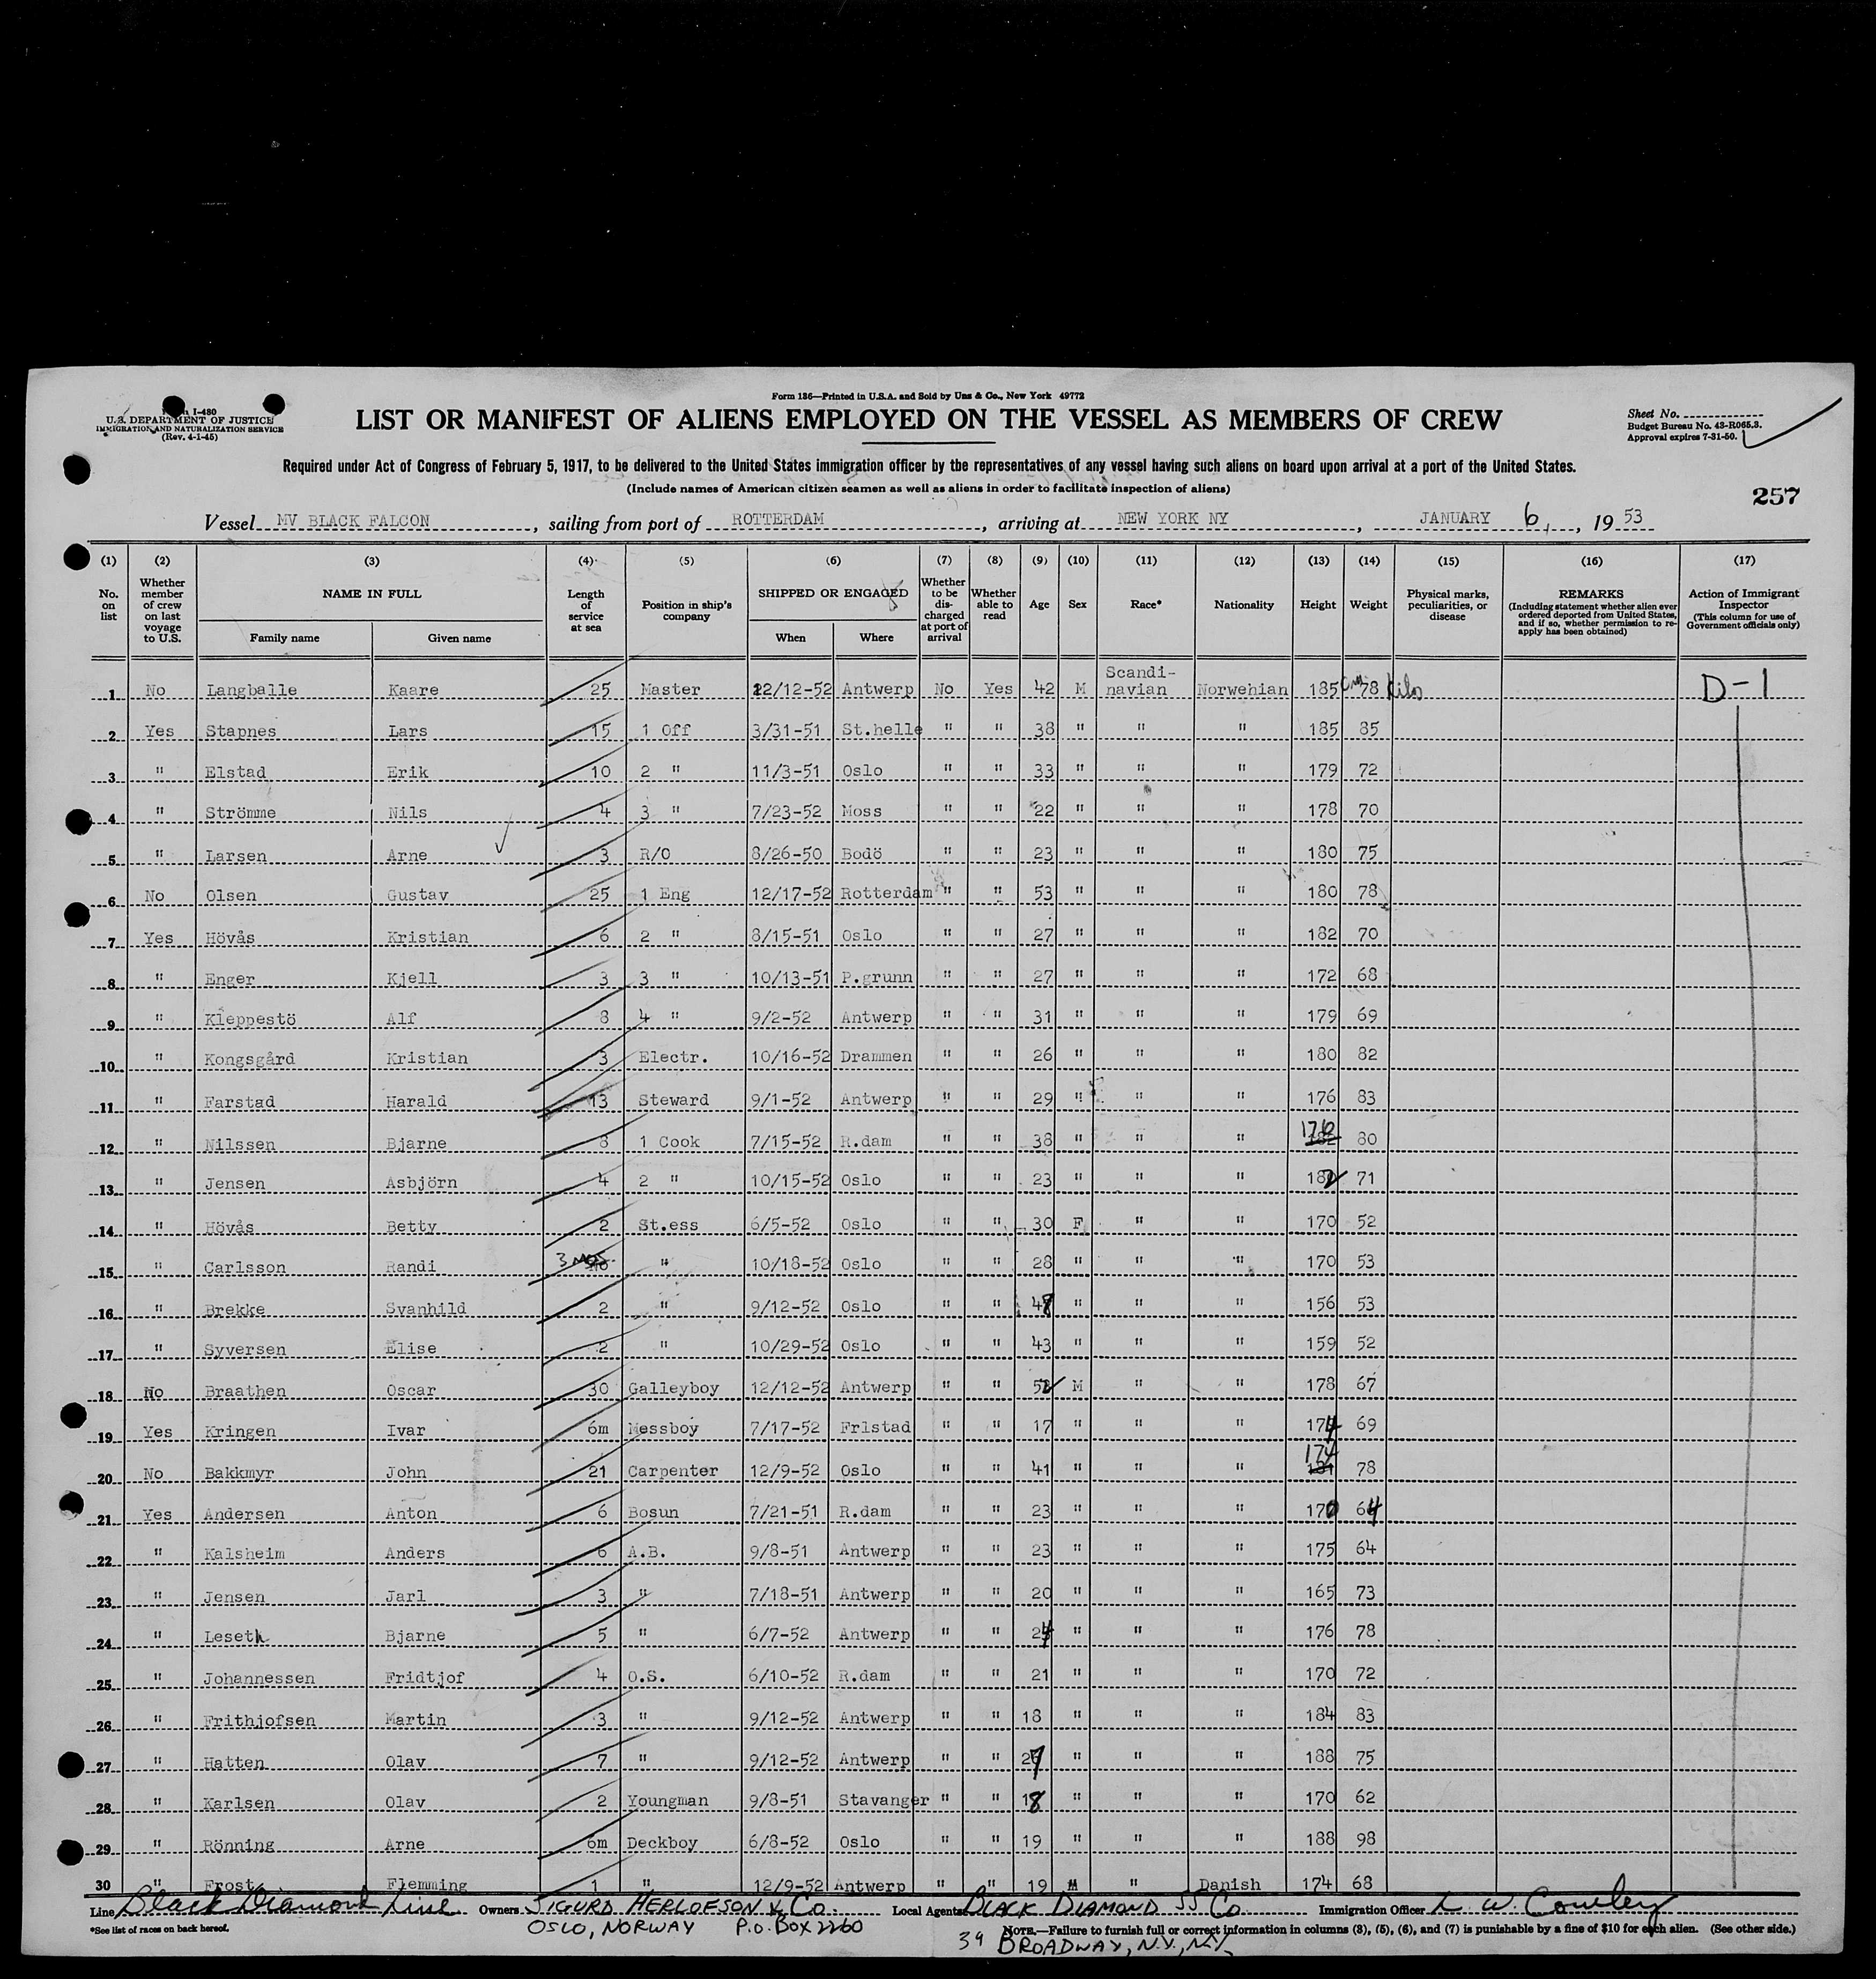 Form 136—Printed in U.S.A. and Sold by Unz & Co., New York 49772
I-480
U.S. DEPARTMENT OF JUSTICE
IMMIGRATION AND NATURALIZATION SERVICE
(Rev. 4-1-45)
LIST OR MANIFEST OF ALIENS EMPLOYED ON THE VESSEL AS MEMBERS OF CREW
Sheet No.
Budget Bureau No. 43-R065.3.
Approval expires 7-31-50.
Required under Act of Congress of February 5, 1917, to be delivered to the United States immigration officer by the representatives of any vessel having such aliens on board upon arrival at a port of the United States.
(Include names of American citizen seamen as well as aliens in order to facilitate inspection of aliens)
257
Vessel MV BLACK FALCON, sailing from port of ROTTERDAM, arriving at NEW YORK NY, JANUARY 6, 1953
(1) (2) (3) (4) (5) (6) (7) (8) (9) (10) (11) (12) (13) (14) (15) (16) (17)
No. on list
Whether member of crew on last voyage to U.S.
NAME IN FULL
Family name Given name
Length of service at sea
Position in ship's company
SHIPPED OR ENGAGED
When Where
Whether to be discharged at port of arrival
Whether able to read
Age
Sex
Race*
Nationality
Height
Weight
Physical marks, peculiarities, or disease
REMARKS
(Including statement whether alien ever ordered deported from United States, and if so, whether permission to re-apply has been obtained)
Action of Immigrant Inspector
(This column for use of Government officials only)
1 No Langballe Kaare 25 Master 12/12-52 Antwerp No Yes 42 M Scandi-navian Norwehian 185 cm 78 kilo D-1
2 Yes Stapnes Lars 15 1 Off 3/31-51 St.helle " " 38 " " " 185 85
3 " Elstad Erik 10 2 " 11/3-51 Oslo " " 33 " " " 179 72
4 " Strömme Nils 4 3 " 7/23-52 Moss " " 22 " " " 178 70
5 " Larsen Arne 3 R/O 8/26-50 Bodö " " 23 " " " 180 75
6 No Olsen Gustav 25 1 Eng 12/17-52 Rotterdam " " 53 " " " 180 78
7 Yes Hövås Kristian 6 2 " 8/15-51 Oslo " " 27 " " " 182 70
8 " Enger Kjell 3 3 " 10/13-51 P.grunn " " 27 " " " 172 68
9 " Kleppestö Alf 8 4 " 9/2-52 Antwerp " " 31 " " " 179 69
10 " Kongsgård Kristian 3 Electr. 10/16-52 Drammen " " 26 " " " 180 82
11 " Farstad Harald 13 Steward 9/1-52 Antwerp " " 29 " " " 176 83
12 " Nilssen Bjarne 8 1 Cook 7/15-52 R.dam " " 38 " " " 176 80
13 " Jensen Asbjörn 4 2 " 10/15-52 Oslo " " 23 " " " 182 71
14 " Hövås Betty 2 St.ess 6/5-52 Oslo " " 30 F " " 170 52
15 " Carlsson Randi 3 mos " 10/18-52 Oslo " " 28 " " " 170 53
16 " Brekke Svanhild 2 " 9/12-52 Oslo " " 48 " " " 156 53
17 " Syversen Elise 2 " 10/29-52 Oslo " " 43 " " " 159 52
18 No Braathen Oscar 30 Galleyboy 12/12-52 Antwerp " " 52 M " " 178 67
19 Yes Kringen Ivar 6m Messboy 7/17-52 Frlstad " " 17 " " " 174 69
20 No Bakkmyr John 21 Carpenter 12/9-52 Oslo " " 41 " " " 174 78
21 Yes Andersen Anton 6 Bosun 7/21-51 R.dam " " 23 " " " 170 64
22 " Kalsheim Anders 6 A.B. 9/8-51 Antwerp " " 23 " " " 175 64
23 " Jensen Jarl 3 " 7/18-51 Antwerp " " 20 " " " 165 73
24 " Leseth Bjarne 5 " 6/7-52 Antwerp " " 24 " " " 176 78
25 " Johannessen Fridtjof 4 O.S. 6/10-52 R.dam " " 21 " " " 170 72
26 " Frithjofsen Martin 3 " 9/12-52 Antwerp " " 18 " " " 184 83
27 " Hatten Olav 7 " 9/12-52 Antwerp " " 27 " " " 188 75
28 " Karlsen Olav 2 Youngman 9/8-51 Stavanger " " 18 " " " 170 62
29 " Rönning Arne 6m Deckboy 6/8-52 Oslo " " 19 " " " 188 98
30 " Frost Flemming 1 " 12/9-52 Antwerp " " 19 M " Danish 174 68
Line Black Diamond Line Owners SIGURD HERLOFSON & Co. Local Agents BLACK DIAMOND SS Co Immigration Officer L W. Cowley
*See list of races on back hereof.
OSLO, NORWAY P.O. BOX 2260
NOTE.—Failure to furnish full or correct information in columns (3), (5), (6), and (7) is punishable by a fine of $10 for each alien. (See other side.)
39 BROADWAY, N.Y., N.Y.